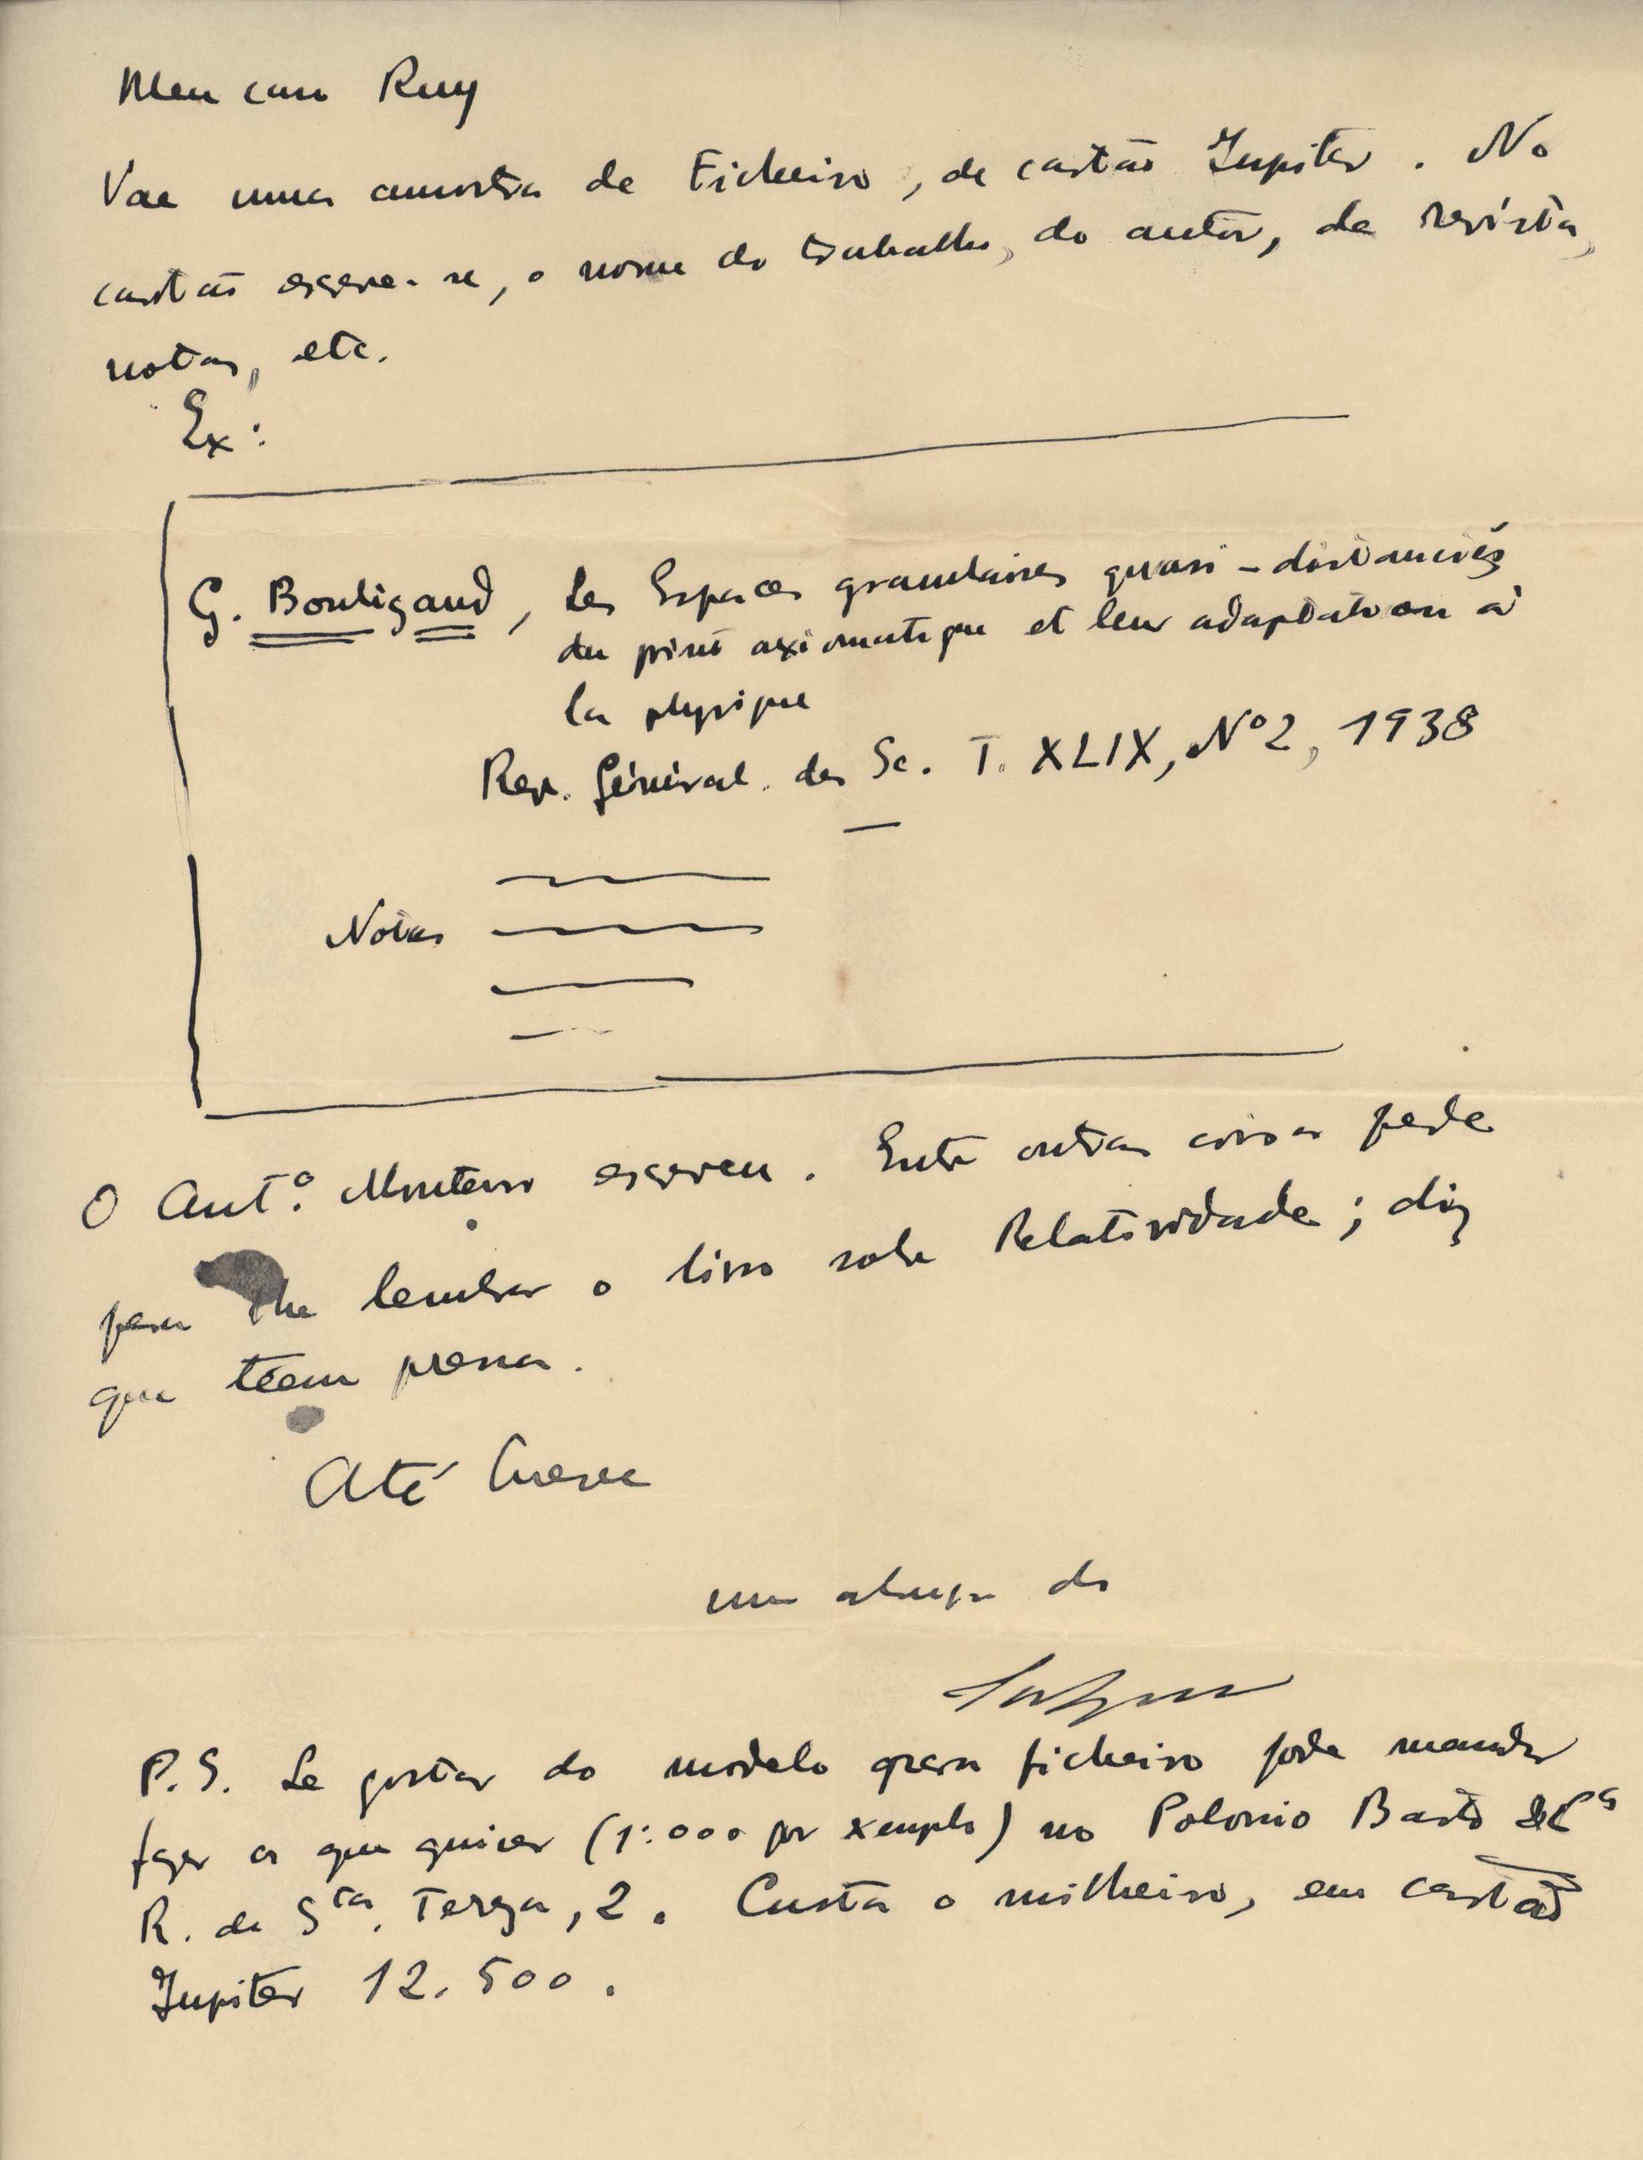 Meu caro Ruy
Vae uma amostra de Ficheiro, de cartão Jupiter. No
cartão escreve-se, o nome do trabalho, do autor, da revista,
notas, etc.
Ex:
G. Bouligand, Les Espaces granulaires quasi-distanciés
du point axiomatique et leur adaptation à
la physique
Rev. Général. des Sc. T. XLIX, Nº2, 1938
Notas
O Antº. Monteiro escreveu. Entre outras coisas pede
para lhe lembrar o livro sobre Relatividade; diz
que téem pressa.
Até breve
um abraço do
P.S. Se gostar do modelo para ficheiro pode mandar
fazer os que quizer (1:000 por exemplo) no Polonio Basto & Cª
R. de Sta. Tereza, 2. Custa o milheiro, em cartão
Jupiter 12.500.